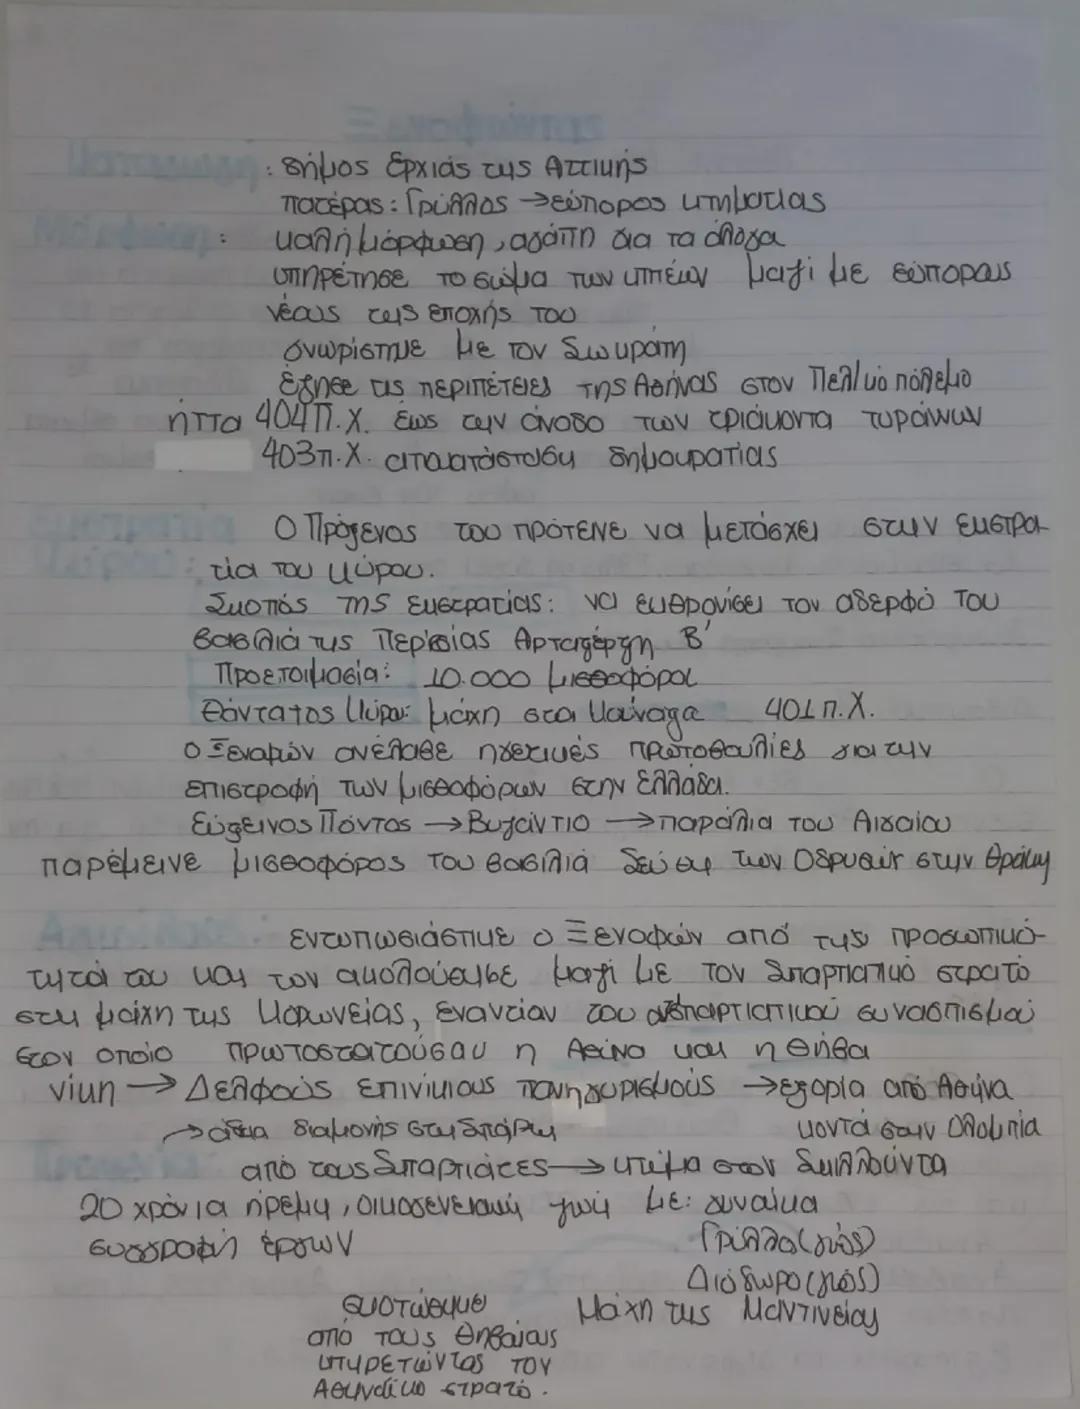 : δήμος Ερχιάς της Αττικής
πατέρας: Γρύλλος → εύπορος κτηματίας
: καλή μόρφωση, αγάπη για τα άλογα
υπηρέτησε το σώμα των ιππέων μαζί με εύπορους
νέους της εποχής του
γνωρίστηκε με τον Σωκράτη
έζησε τις περιπέτειες της Αθήνας στον Πελ/κό πόλεμο
ήττα 404 π.Χ. έως την άνοδο των τριάκοντα τυράννων
403 π.Χ. αποκατάσταση δημοκρατίας
Ο Πρόξενος του πρότεινε να μετάσχει στην εκστρα-
τία του Κύρου.
Σκοπός της εκστρατίας: να εκθρονίσει τον αδερφό του
βασιλιά της Περσίας Αρταξέρξη Β'
Προετοιμασία: 10.000 μισθοφόροι
Θάντατος Κύρου: μάχη στα Κούναξα 401 π.Χ.
Ο Ξεναφών ανέλαβε ηγετικές πρωτοβουλίες για την
επιστροφή των μισθοφόρων στην Ελλάδα.
Εύξεινος Πόντος → Βυζάντιο → παράλια του Αιγαίου
παρέμεινε μισθοφόρος του βασιλιά Σεύθη των Οδρυσών στην Θράκη
εντυπωσιάστηκε ο Ξενοφών από την προσωπικό-
τητά του και τον ακολούθησε μαζί με τον Σπαρτιατικό στρατό
στη μάχη της Κορωνείας, εναντίον του αντισπαρτιατικού συνασπισμού
στον οποίο πρωτοστατούσαν η Αθήνα και η Θήβα
νίκη → Δελφούς επινίκιους πανηγυρισμούς → εξορία από Αθήνα
→ άδεια διαμονής στη Σπάρτη κοντά στην Ολυμπία
από τους Σπαρτιάτες → κτήμα στον Σκιλλούντα
20 χρόνια ήρεμη, οικογενειακή ζωή με: γυναίκα
συγγραφή έργων Γρύλλο (γιός)
Διόδωρο (γιός)
σκοτώθηκε Μάχη της Μαντινείας
από τους Θηβαίους
υπηρετώντας τον
Αθηναϊκό στρατό.